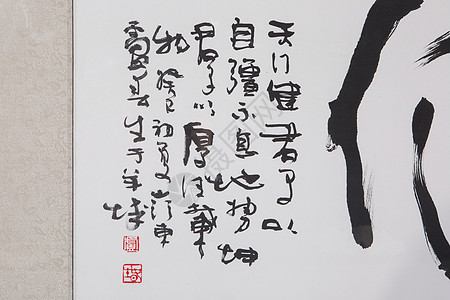 天行健君子以
自彊不息地势坤
君子以厚德載
物癸巳初夏
生于羊城